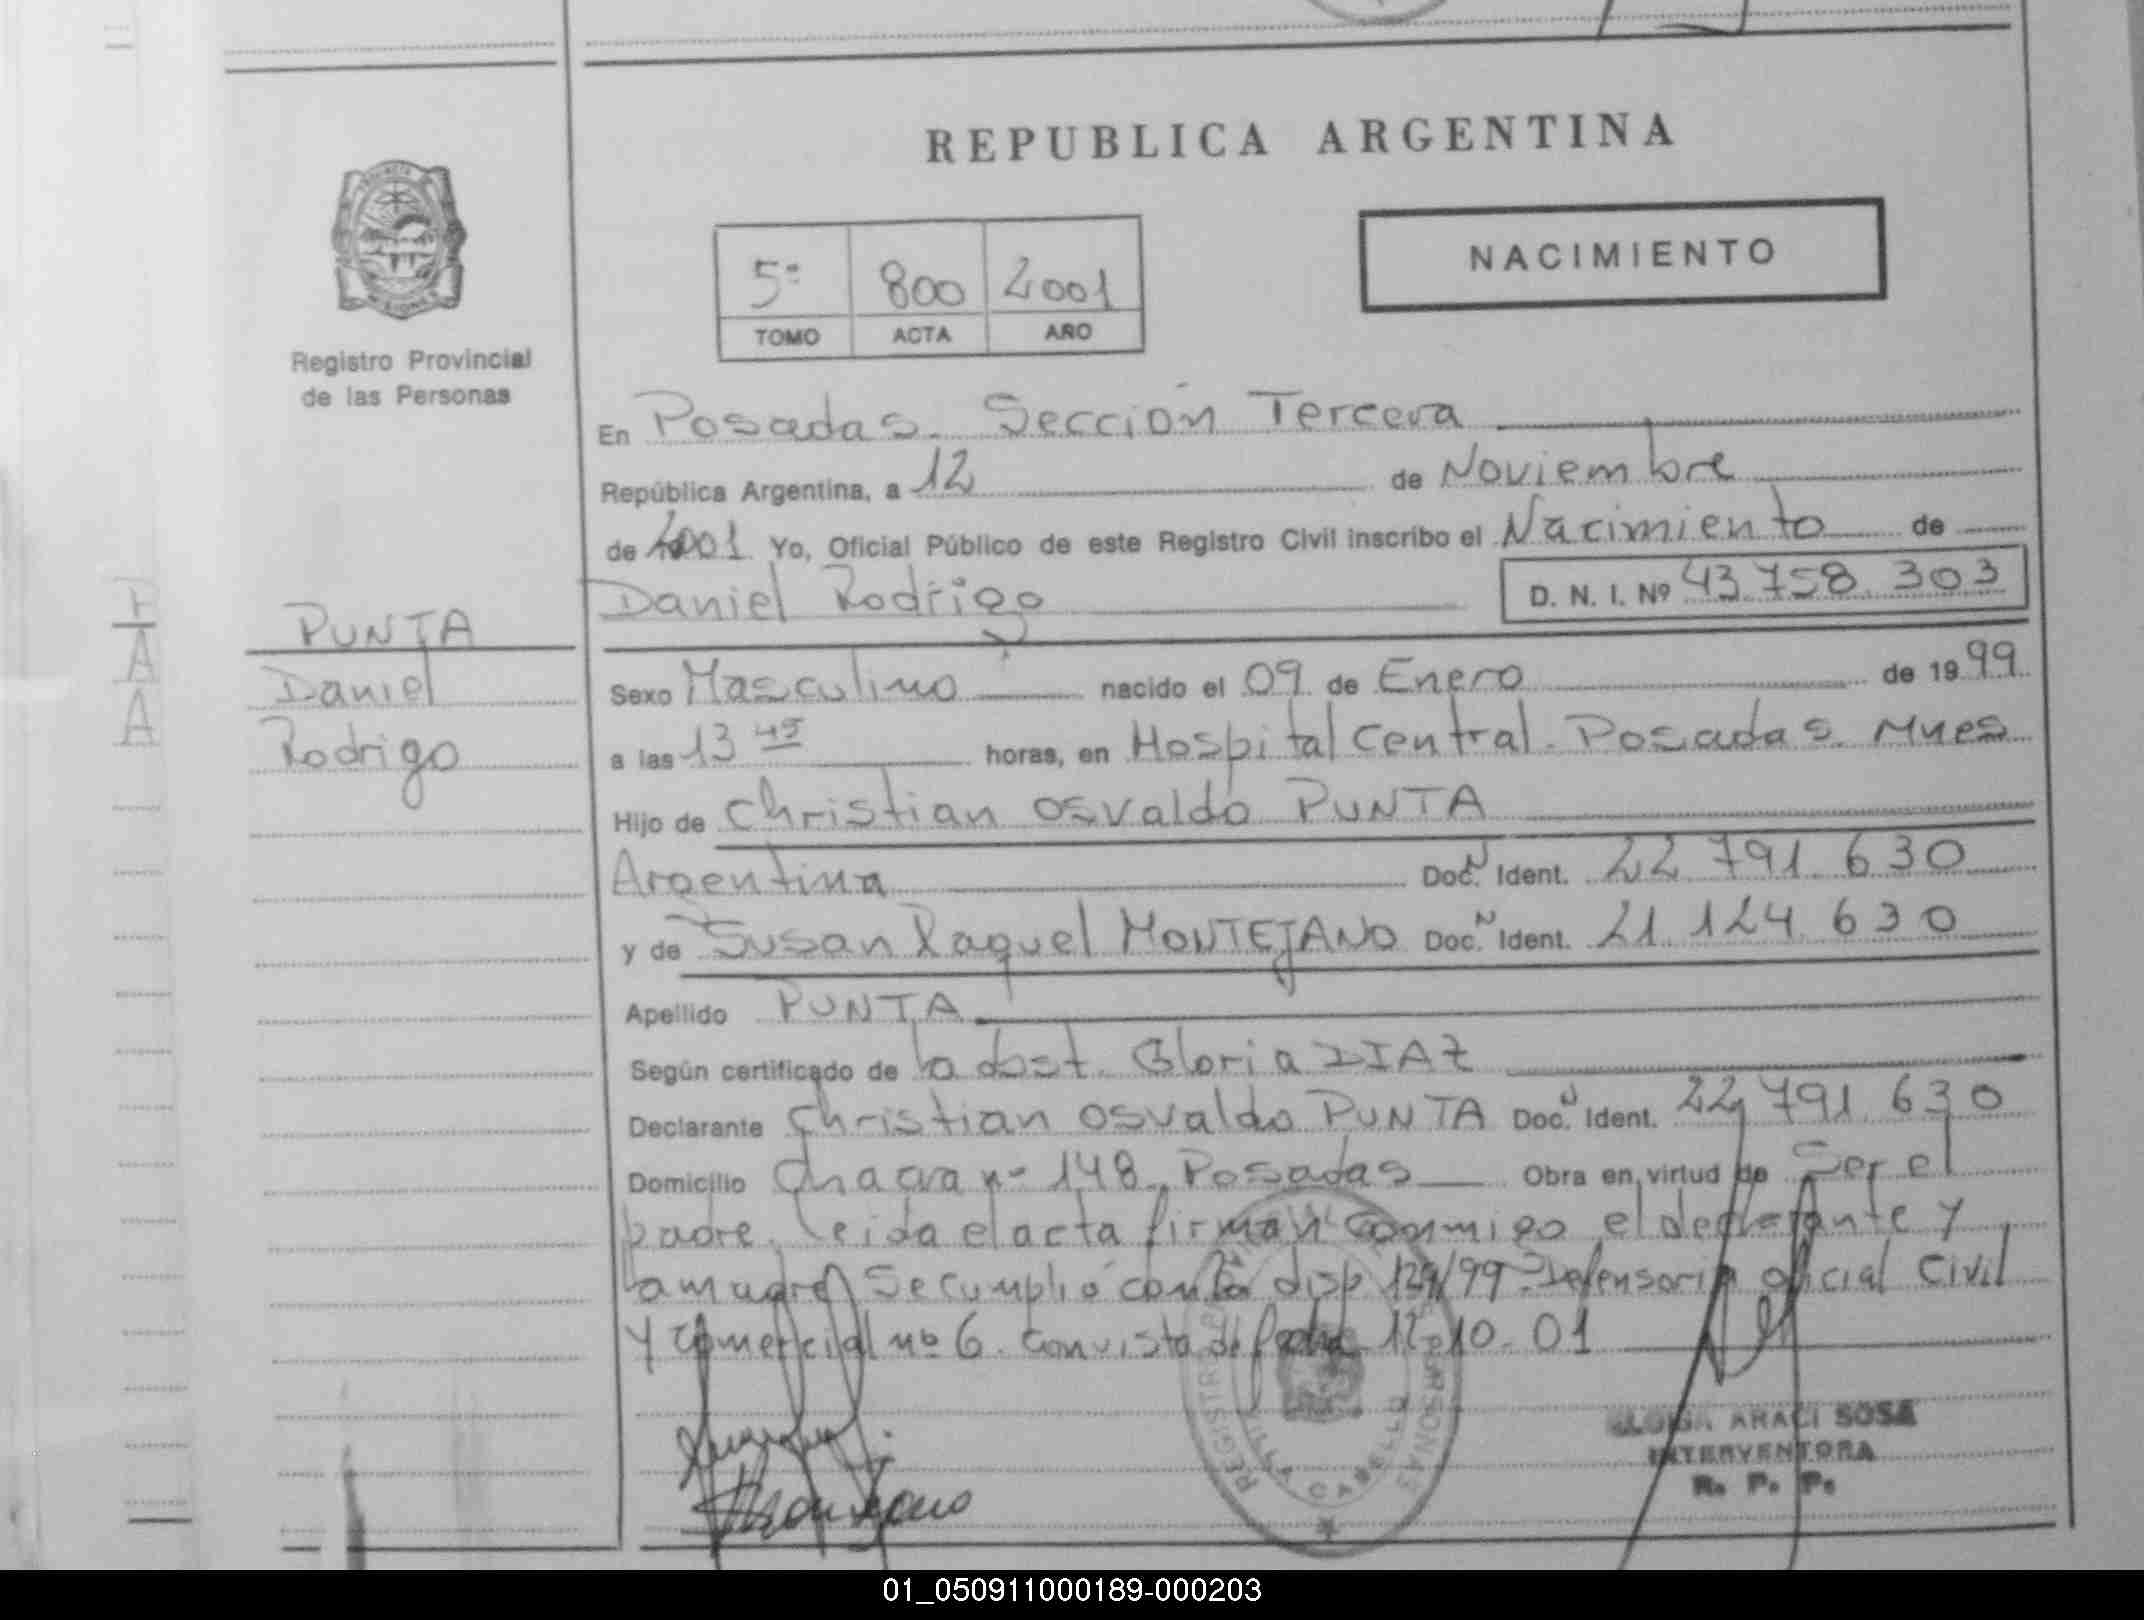 REPUBLICA ARGENTINA
NACIMIENTO
5º 800 2001
TOMO ACTA AÑO
Registro Provincial
de las Personas
En Posadas. Sección Tercera
República Argentina, a 12 de Noviembre
de 2001 Yo, Oficial Público de este Registro Civil inscribo el Nacimiento de
Daniel Rodrigo D. N. I. Nº 43.758.303
PUNTA
Daniel
Rodrigo
Sexo Masculino nacido el 09 de Enero de 1999
a las 13 45 horas, en Hospital Central. Posadas. Mnes
Hijo de Christian Osvaldo PUNTA
Argentina Doc. N Ident. 22.791.630
y de Susan Raquel MONTEJANO Doc. N Ident. 21.124.630
Apellido PUNTA
Según certificado de la obst. Gloria DIAZ
Declarante Christian Osvaldo PUNTA Doc. N Ident. 22.791.630
Domicilio Chacra nº 148. Posadas Obra en virtud de Ser el
padre. Leida el acta firman conmigo el declarante y
la madre. Se cumplió con la disp 129/99 Defensoria oficial Civil
y Comercial nº 6. con vista de fecha 12-10-01
REGISTRO PERSONAS
VILLA CABELLO
ARACI SOSA
INTERVENTORA
R. P. P.
01_050911000189-000203